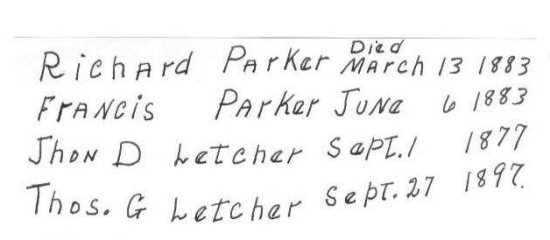 Died
Richard Parker March 13 1883
Francis Parker June 6 1883
Jhon D Letcher Sept. 1 1877
Thos. G Letcher Sept. 27 1897.